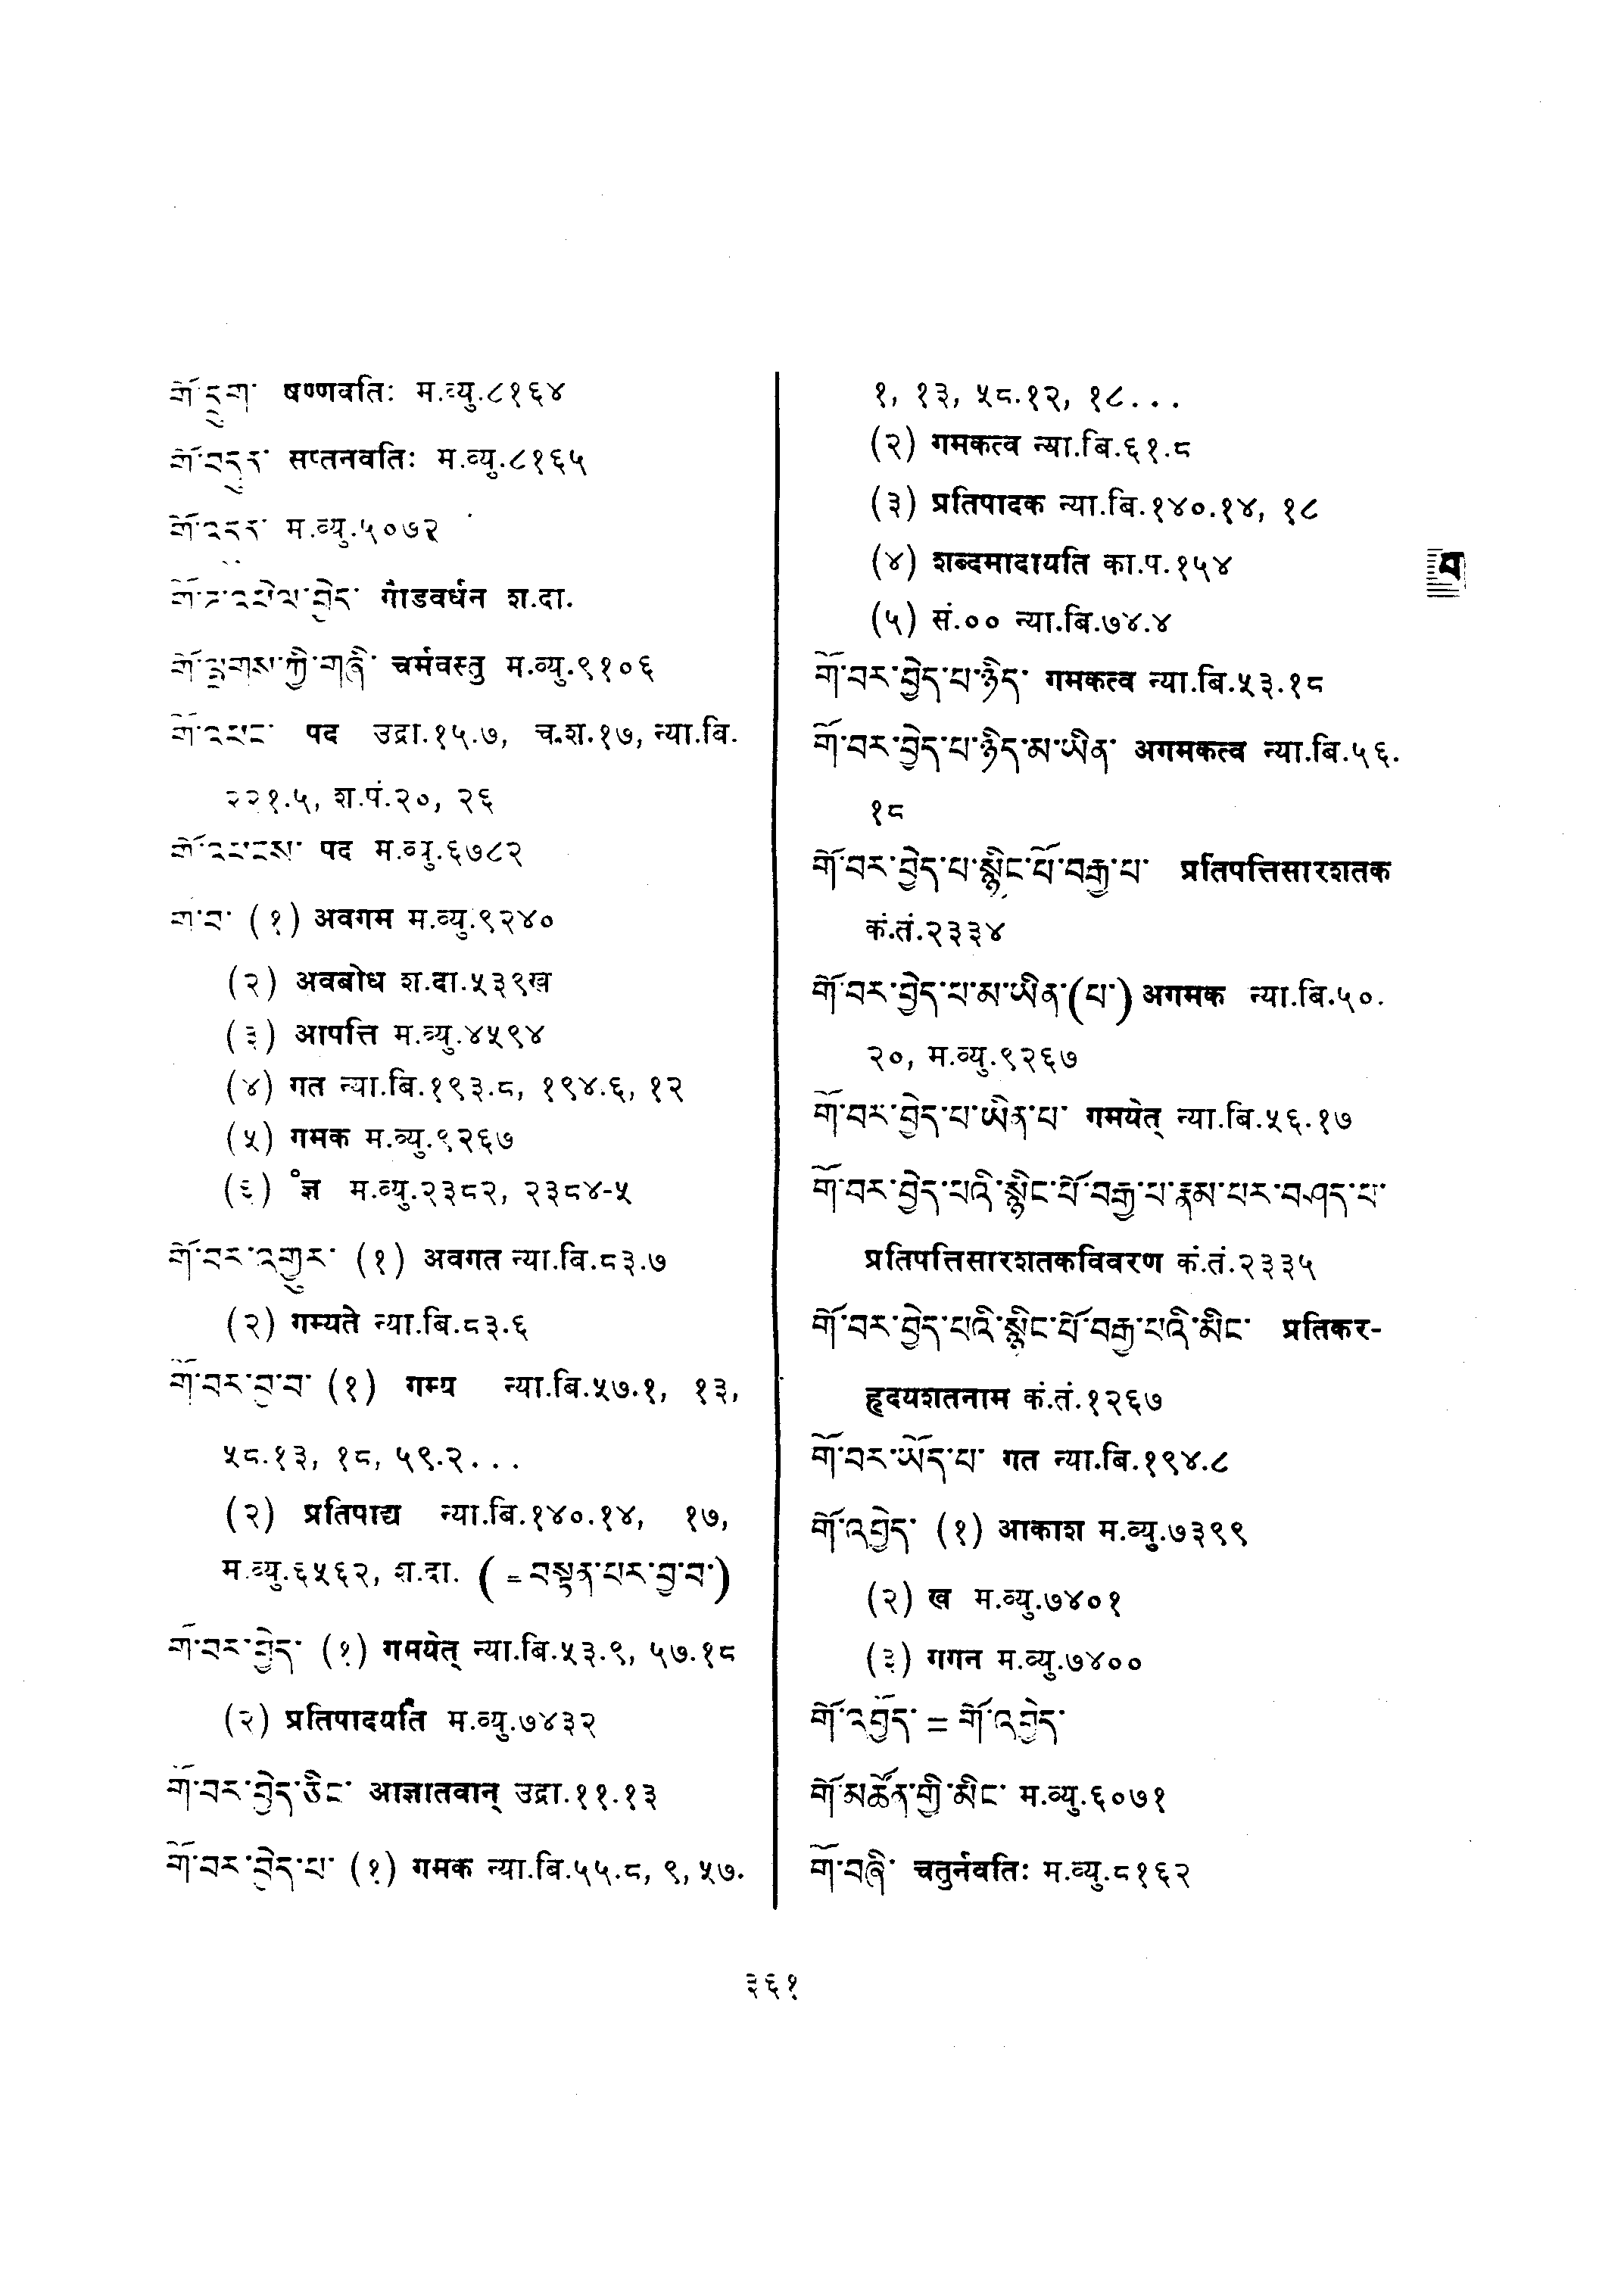 གོ་དྲུག་ षण्णवतिः म.व्यु.८१६४
གོ་བདུར་ सप्तनवतिः म.व्यु.८१६५
གོ་འདར་ म.व्यु.५०७२
གོ་ཌ་འཕེལ་བྱེད་ गौडवर्धन श.दा.
གོ་ལྤགས་ཀྱི་གཞི་ चर्मवस्तु म.व्यु.९१०६
གོ་འཕང་ पद उद्रा.१५.७, च.श.१७, न्या.बि.
२२१.५, श.पं.२०, २६
གོ་འཕངས་ पद म.व्यु.६७८२
གོ་བ་ (१) अवगम म.व्यु.९२४०
(२) अवबोध श.दा.५३९ख
(३) आपत्ति म.व्यु.४५९४
(४) गत न्या.बि.१९३.८, १९४.६, १२
(५) गमक म.व्यु.९२६७
(६) ॰ज्ञ म.व्यु.२३८२, २३८४-५
གོ་བར་འགྱུར་ (१) अवगत न्या.बि.८३.७
(२) गम्यते न्या.बि.८३.६
གོ་བར་བྱ་བ་ (१) गम्य न्या.बि.५७.१, १३,
५८.१३, १८, ५९.२...
(२) प्रतिपाद्य न्या.बि.१४०.१४, १७,
म.व्यु.६५६२, श.दा. (=བསྟན་པར་བྱ་བ་)
གོ་བར་བྱེད་ (१) गमयेत् न्या.बि.५३.९, ५७.१८
(२) प्रतिपादयति म.व्यु.७४३२
གོ་བར་བྱེད་ཅིང་ आज्ञातवान् उद्रा.११.१३
གོ་བར་བྱེད་པ་ (१) गमक न्या.बि.५५.८, ९, ५७.
१, १३, ५८.१२, १८...
(२) गमकत्व न्या.बि.६१.८
(३) प्रतिपादक न्या.बि.१४०.१४, १८
(४) शब्दमादायति का.प.१५४
(५) सं.०० न्या.बि.७४.४
གོ་བར་བྱེད་པ་ཉིད་ गमकत्व न्या.बि.५३.१८
གོ་བར་བྱེད་པ་ཉིད་མ་ཡིན་ अगमकत्व न्या.बि.५६.
१८
གོ་བར་བྱེད་པ་སྙིང་པོ་བརྒྱ་པ་ प्रतिपत्तिसारशतक
कं.तं.२३३४
གོ་བར་བྱེད་པ་མ་ཡིན་(པ་) अगमक न्या.बि.५०.
२०, म.व्यु.९२६७
གོ་བར་བྱེད་པ་ཡིན་པ་ गमयेत् न्या.बि.५६.१७
གོ་བར་བྱེད་པའི་སྙིང་པོ་བརྒྱ་པ་རྣམ་པར་བཤད་པ་
प्रतिपत्तिसारशतकविवरण कं.तं.२३३५
གོ་བར་བྱེད་པའི་སྙིང་པོ་བརྒྱ་པའི་མིང་ प्रतिकर-
हृदयशतनाम कं.तं.१२६७
གོ་བར་ཡོད་པ་ गत न्या.बि.१९४.८
གོ་འབྱེད་ (१) आकाश म.व्यु.७३९९
(२) ख म.व्यु.७४०१
(३) गगन म.व्यु.७४००
གོ་འབྱོད་ = གོ་འབྱེད་
གོ་མཚོན་གྱི་མིང་ म.व्यु.६०७१
གོ་བཞི་ चतुर्नवतिः म.व्यु.८१६२
३६१